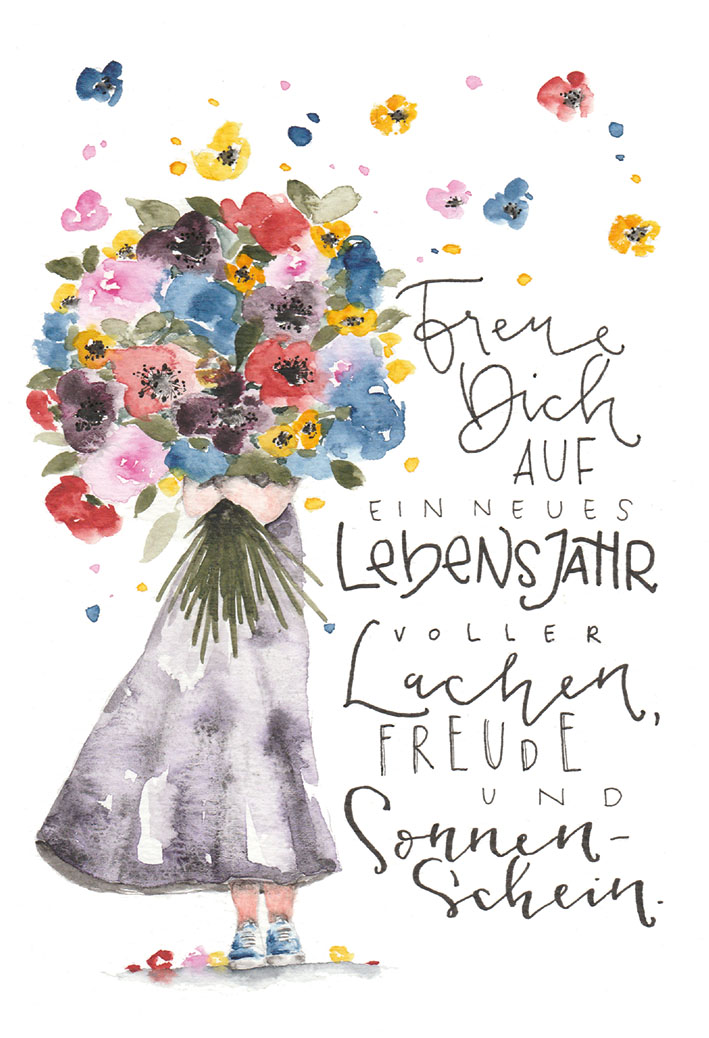 Freue
Dich
AUF
EIN NEUES
LebensJAHR
VOLLER
Lachen,
FREUDE
UND
Sonnen-
Schein.